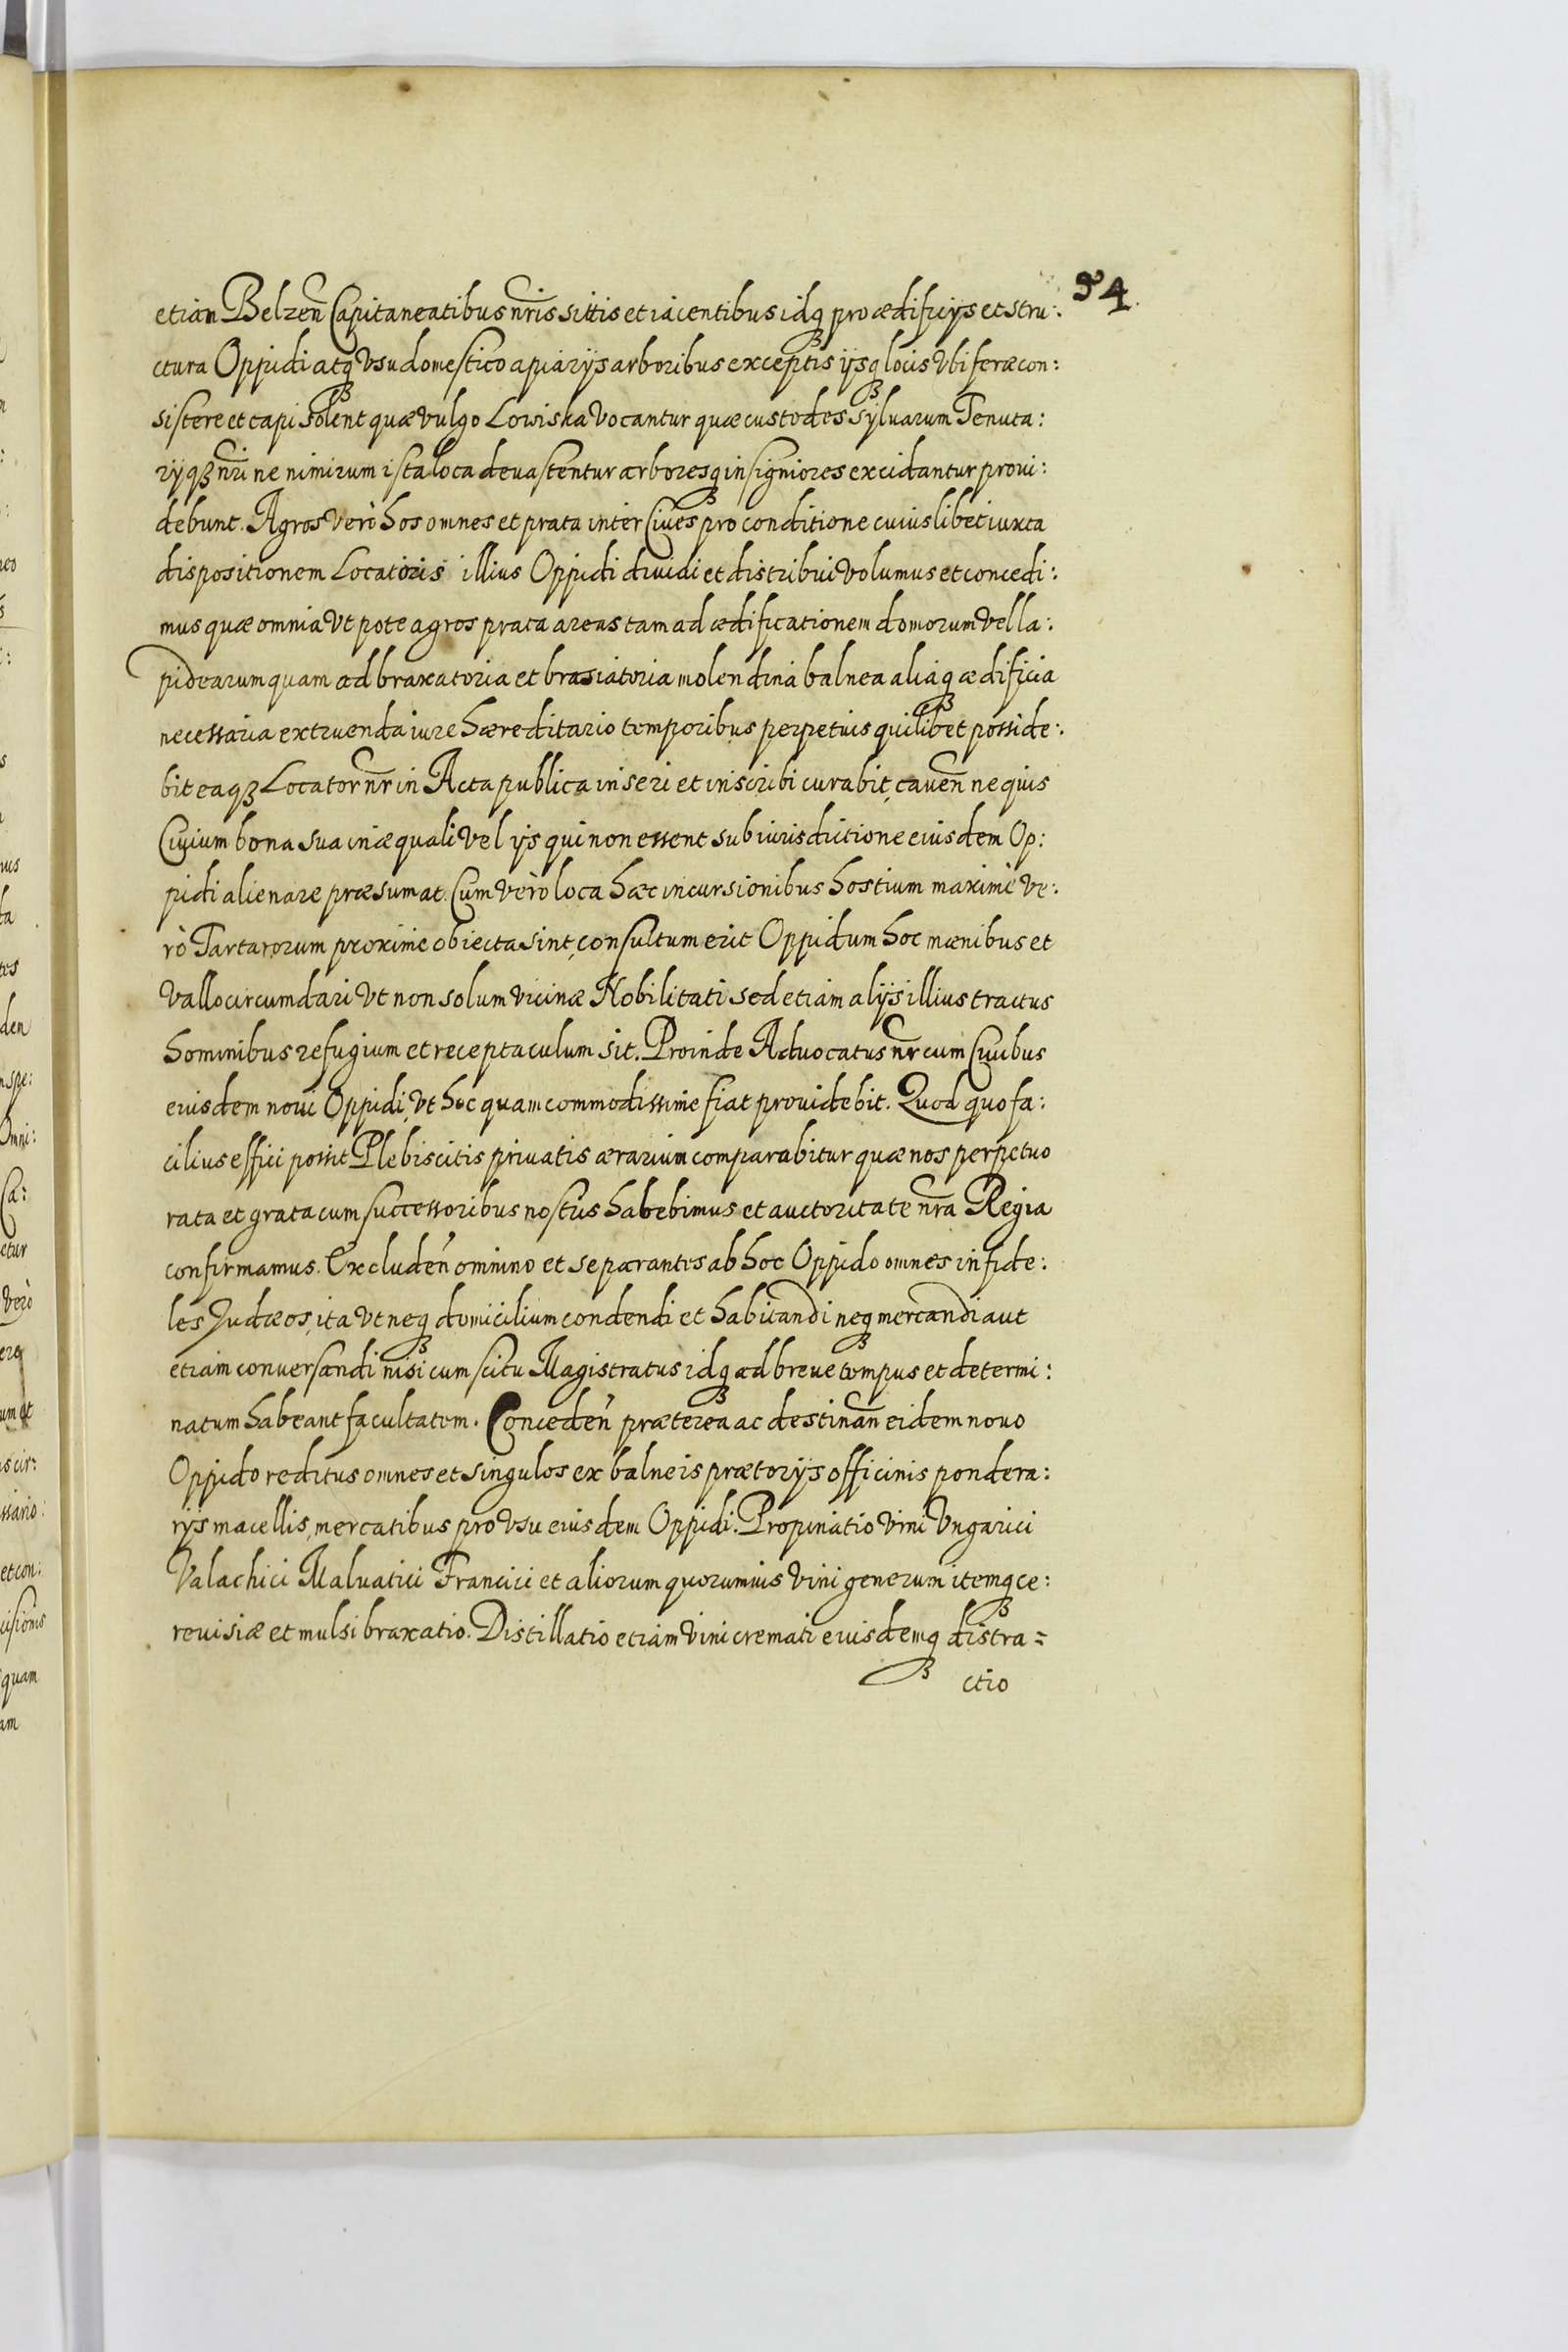 94.
etiam Belzen̄ Capitaneatibus nr̄is sittis et iacentibus idq₃ pro ædificijs et stru:
ctura Oppidi atq₃ Vsu domestico apiarijs arboribus exceptis ijsq₃ locis Vbi feræ con:
sistere et capi solent quæ vulgo Lowiska Vocantur quæ custodes Syluarum Tenuta:
rijq₃ nr̄i ne nimirum ista loca deuastentur arboresq₃ insigniores excidantur proui:
debunt. Agros verò hos omnes et prata inter Ciues pro conditione cuiuslibet iuxta
dispositionem Locatoris illius Oppidi diuidi et distribui Volumus et concedi:
mus quæ omnia Vt pote agros prata areas tam ad ædificationem domorum Vel la:
pidearum quam ad braxatoria et brasiatoria molendina balnea aliaq₃ ædificia
necessaria extruenda iure hæreditario temporibus perpetuis quilibet posside:
bit eaq₃ Locator nr̄ in Acta publica inseri et inscribi curabit, cauen̄ ne quis
Ciuium bona sua inæquali Vel ijs qui non essent sub iurisdictione eiusdem Op:
pidi alienare præsumat. Cum verò loca hæc incursionibus hostium maximè Ve:
rò Tartarorum proximè obiecta sint, consultum erit Oppidum hoc mænibus et
Vallo circumdari Vt non solum vicinæ Nobilitati sed etiam alijs illius tractus
hominibus refugium et receptaculum sit. Proinde Aduocatus nr̄ cum Ciuibus
eiusdem noui Oppidi, Vt hoc quam commodissime fiat prouidebit. Quod quo fa:
cilius effici possit Plebiscitis priuatis ærarium comparabitur quæ nos perpetuo
rata et grata cum successoribus nostris habebimus et auctoritate nr̄a Regia
confirmamus. Excluden̄ omnino et separantes ab hoc Oppido omnes infide:
les Judæos, ita Vt neq₃ domicilium condendi et habitandi neq₃ mercandi aut
etiam conuersandi nisi cum scitu Magistratus idq₃ ad breue tempus et determi:
natum habeant facultatem. Conceden̄ præterea ac destinan̄ eidem nouo
Oppido reditus omnes et singulos ex balneis prætorijs officinis pondera:
rijs macellis, mercatibus pro Vsu eiusdem Oppidi. Propinatio Vini Vngarici
Valachici Maluatici Francici et aliorum quorumuis Vini generum itemq₃ ce:
reuisiæ et mulsi braxatio. Distillatio etiam Vini cremati eiusdemq₃ distra=
ctio